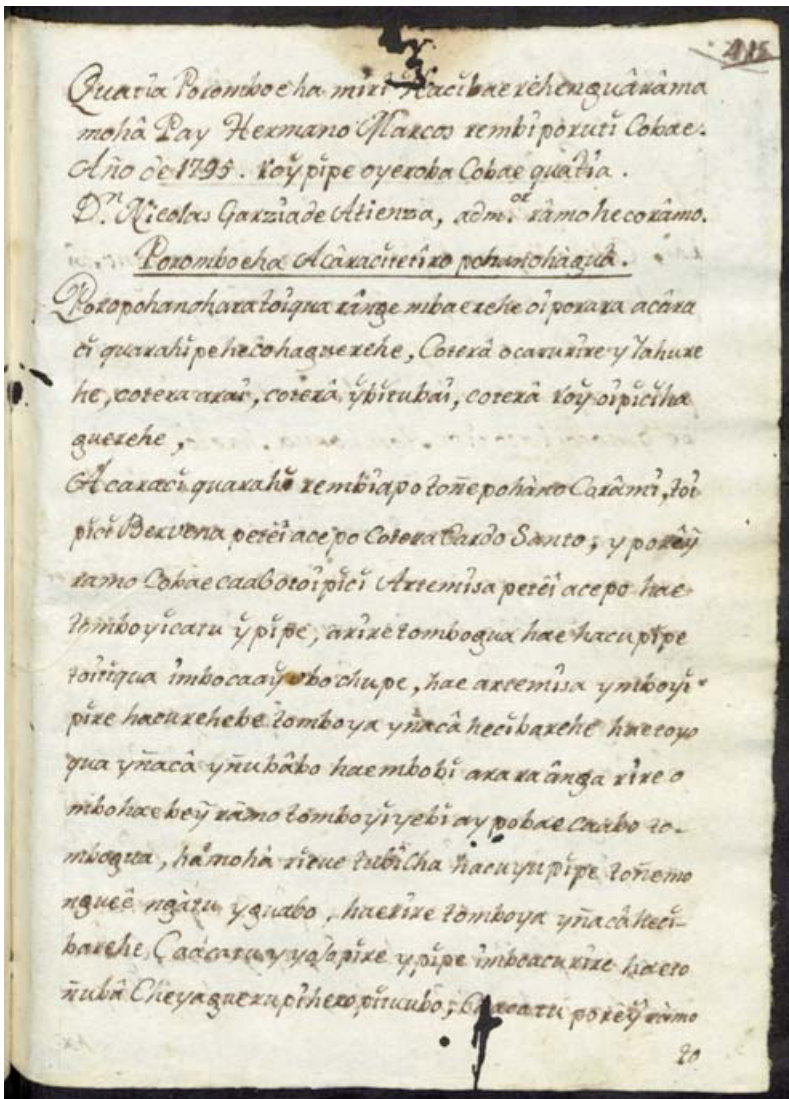 415
Quatia Poromboeha miri Hacĭbae rehenguârâma
mohâ Pay Hermano Marcos rembiporuti Cobae.
Año de 1795. roỹ pĭpe oyeroba Cobae quatĭa.
D.ⁿ Nicolas Garzia de Atienza, adm.ᵒʳ râmo hecorâmo.
Poromboeha Acâracĭtetĭro pohanohàguâ.
Poropohanohara toĭqua rânge mbaerehe oĭporara acâra
cĭ quarahĭpe hecohaguerehe, Coterâ ocarurĭre y Iahure
he, cotera araĭ, coterâ ỹbĭtubaĭ, coterâ roỹ oĭpĭcĭha
guerehe,
Acaracĭ quarahĭ rembĭapo toñepohàno Corâmĭ, toĭ
pĭcĭ Bervena peteĭ acepo Cotera Cardo Santo; y porêỹ
ramo Cobae caabo toĭpĭcĭ Artemisa peteî acepo hae
tomboyĭcatu ỹpĭpe, arĭre tombogua hae hacu pĭpe
toĭtĭqua ĭmbocaaỹobo chupe, hae artemisa ymboyĭ
pĭre hacurehebe tomboya yñacâ hecĭbarehe hae toyo
qua yñacâ yñubâbo hae mbobĭ arara ânga rĭre o
mbohaebeỹ râmo tomboyĭyebĭ aypobae caabo to-
mbogua, hâmohà rĭcue tubĭcha hacuyu pĭpe toñemo
ngueê ngàtu yguabo, haerĭre tomboya yñacâ hecĭ-
barehe Caàcatu yyosopĭre ypĭpe ĭmboacurĭre hae to
ñubâ Cheyaguerupĭ heropĭtucubo; Caacatu porêỹ ràmo
to